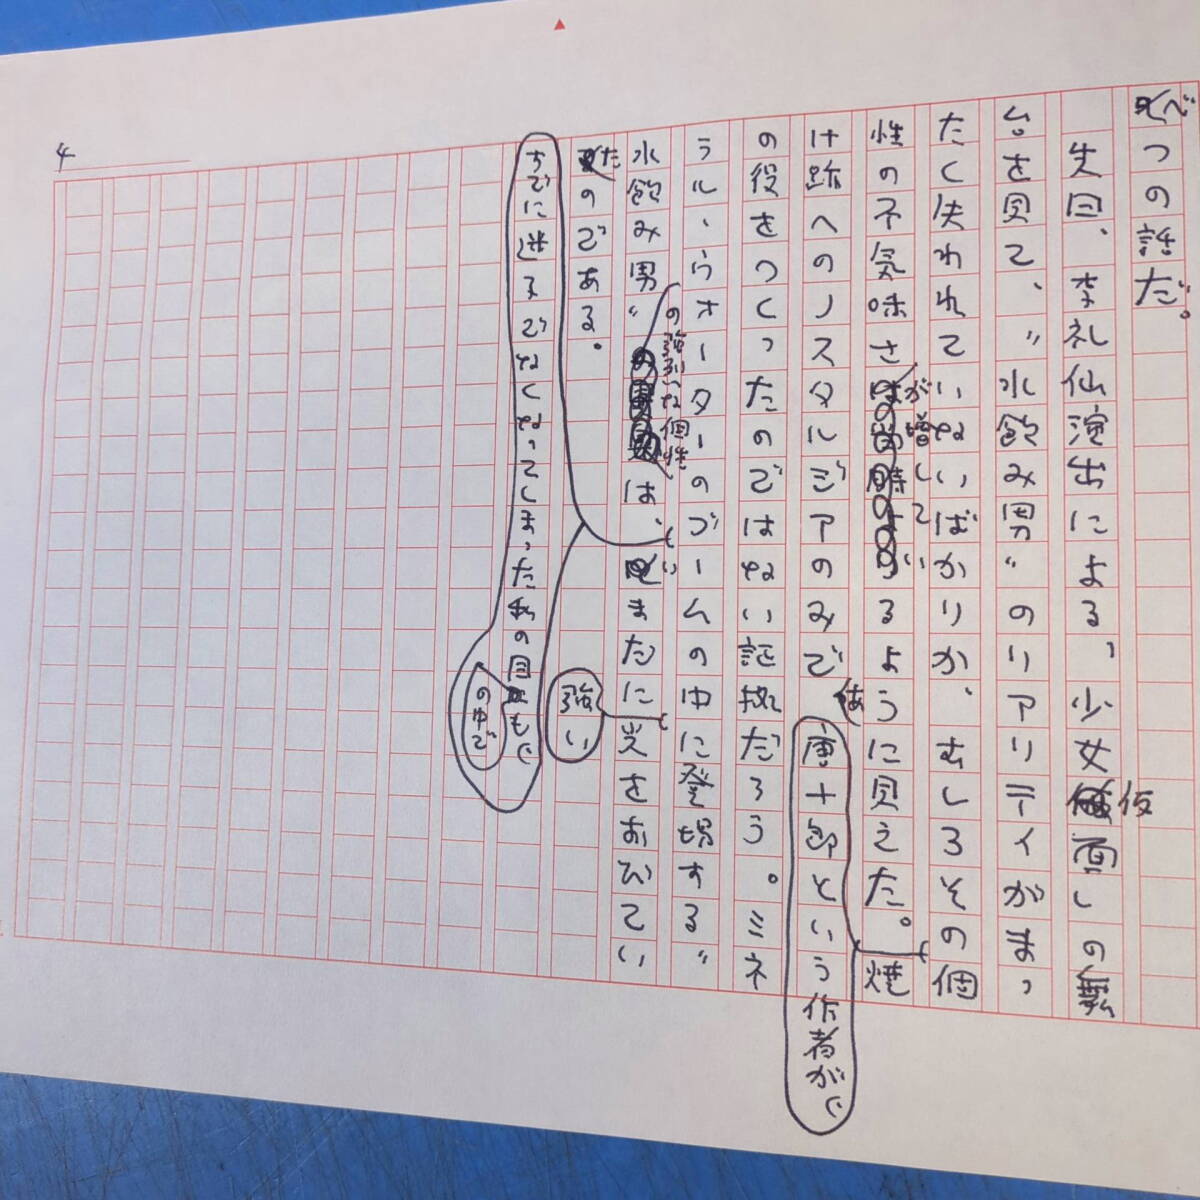 べつの話だ。
先日、李礼仙演出による、「少女仮面」の舞
台を見て、〝水飲み男〟のリアリティがまっ
たく失われていないばかりか、むしろその個
性の不気味さが増しているように見えた。焼
け跡へのノスタルジアのみで
は
唐十郎という作者が
の役をつくったのではない証拠だろう。ミネ
ラル・ウオーターのブームの中に登場する〝
の強烈な個性
水飲み男〟は、いまだに光をおびてい
強い
たのである。
すでに迷子でなくなってしまった私の目にも
の中で
4